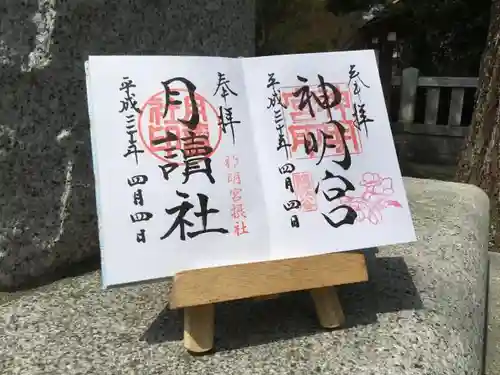 奉拝
神明宮
平成三十年
四月四日
奉拝
月讀社
神明宮摂社
平成三十年
四月四日